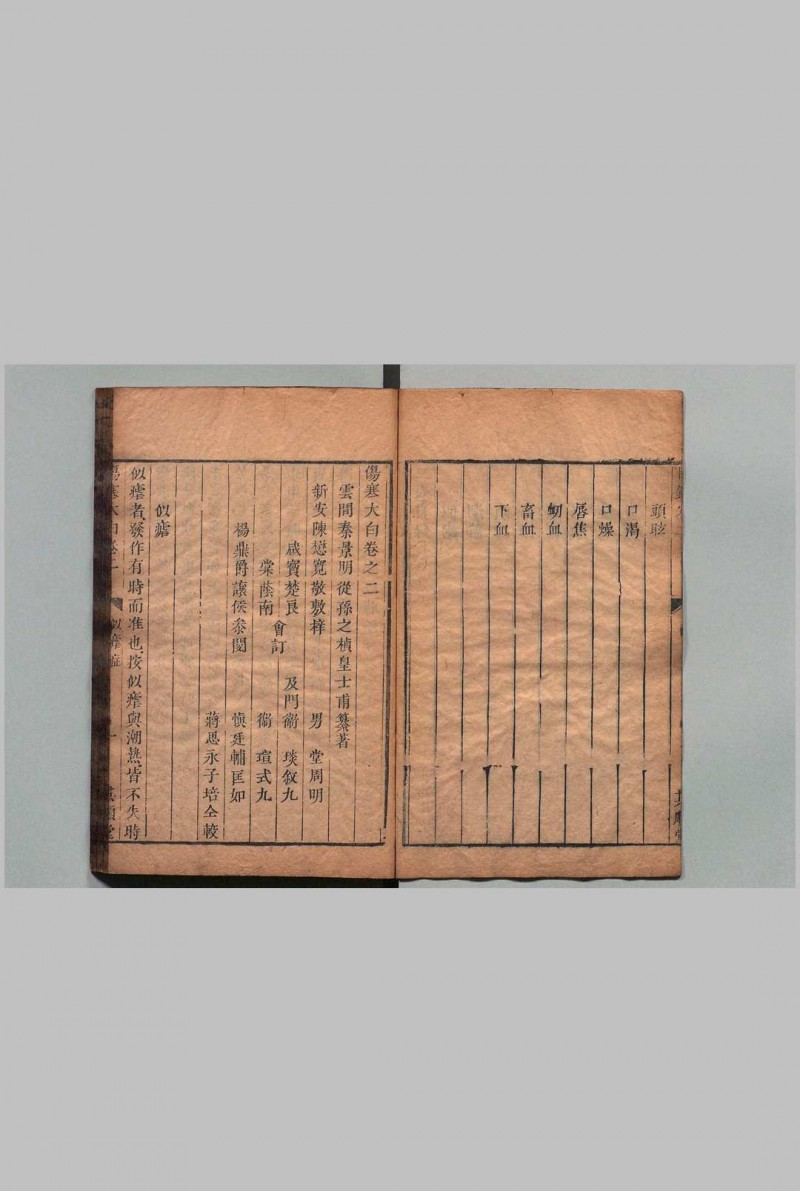 頭眩
口渴
口燥
唇焦
衂血
畜血
下血
傷寒大白卷之二
雲間秦景明從孫之楨皇士甫纂著
新安陳懋寬敬敷梓 男 堂周明
戚賓楚良 及門衞 琰叙九
棠蔭南 會訂 衞 瑄式九
楊鼎爵讓侯叅閱 愼廷輔匡如
蔣思永子培仝較
似瘧
似瘧者發作有時而准也按似瘧與潮熱皆不失時
傷寒大白卷二 似瘧 一 其順堂